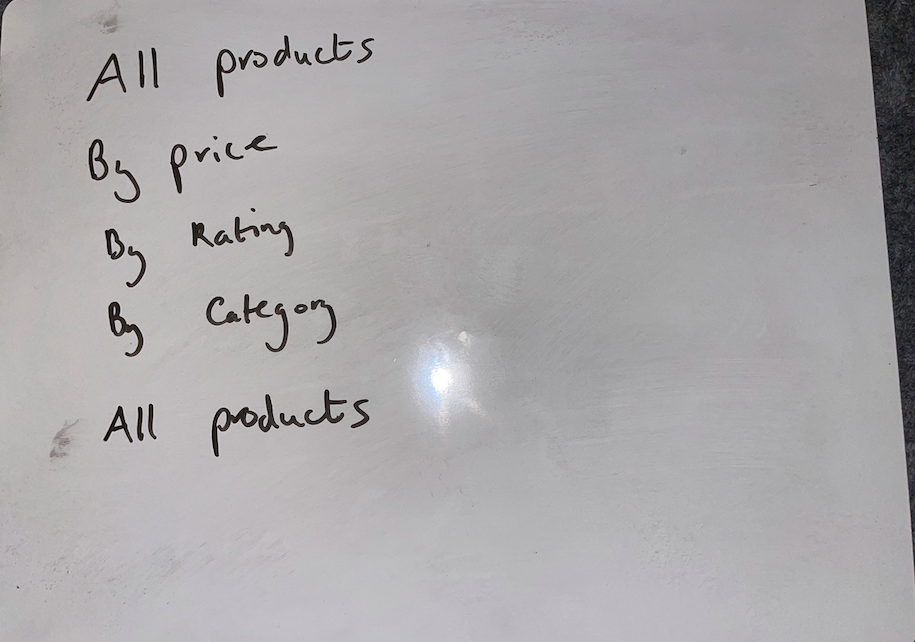 All products
By price
By Rating
By Category
All products